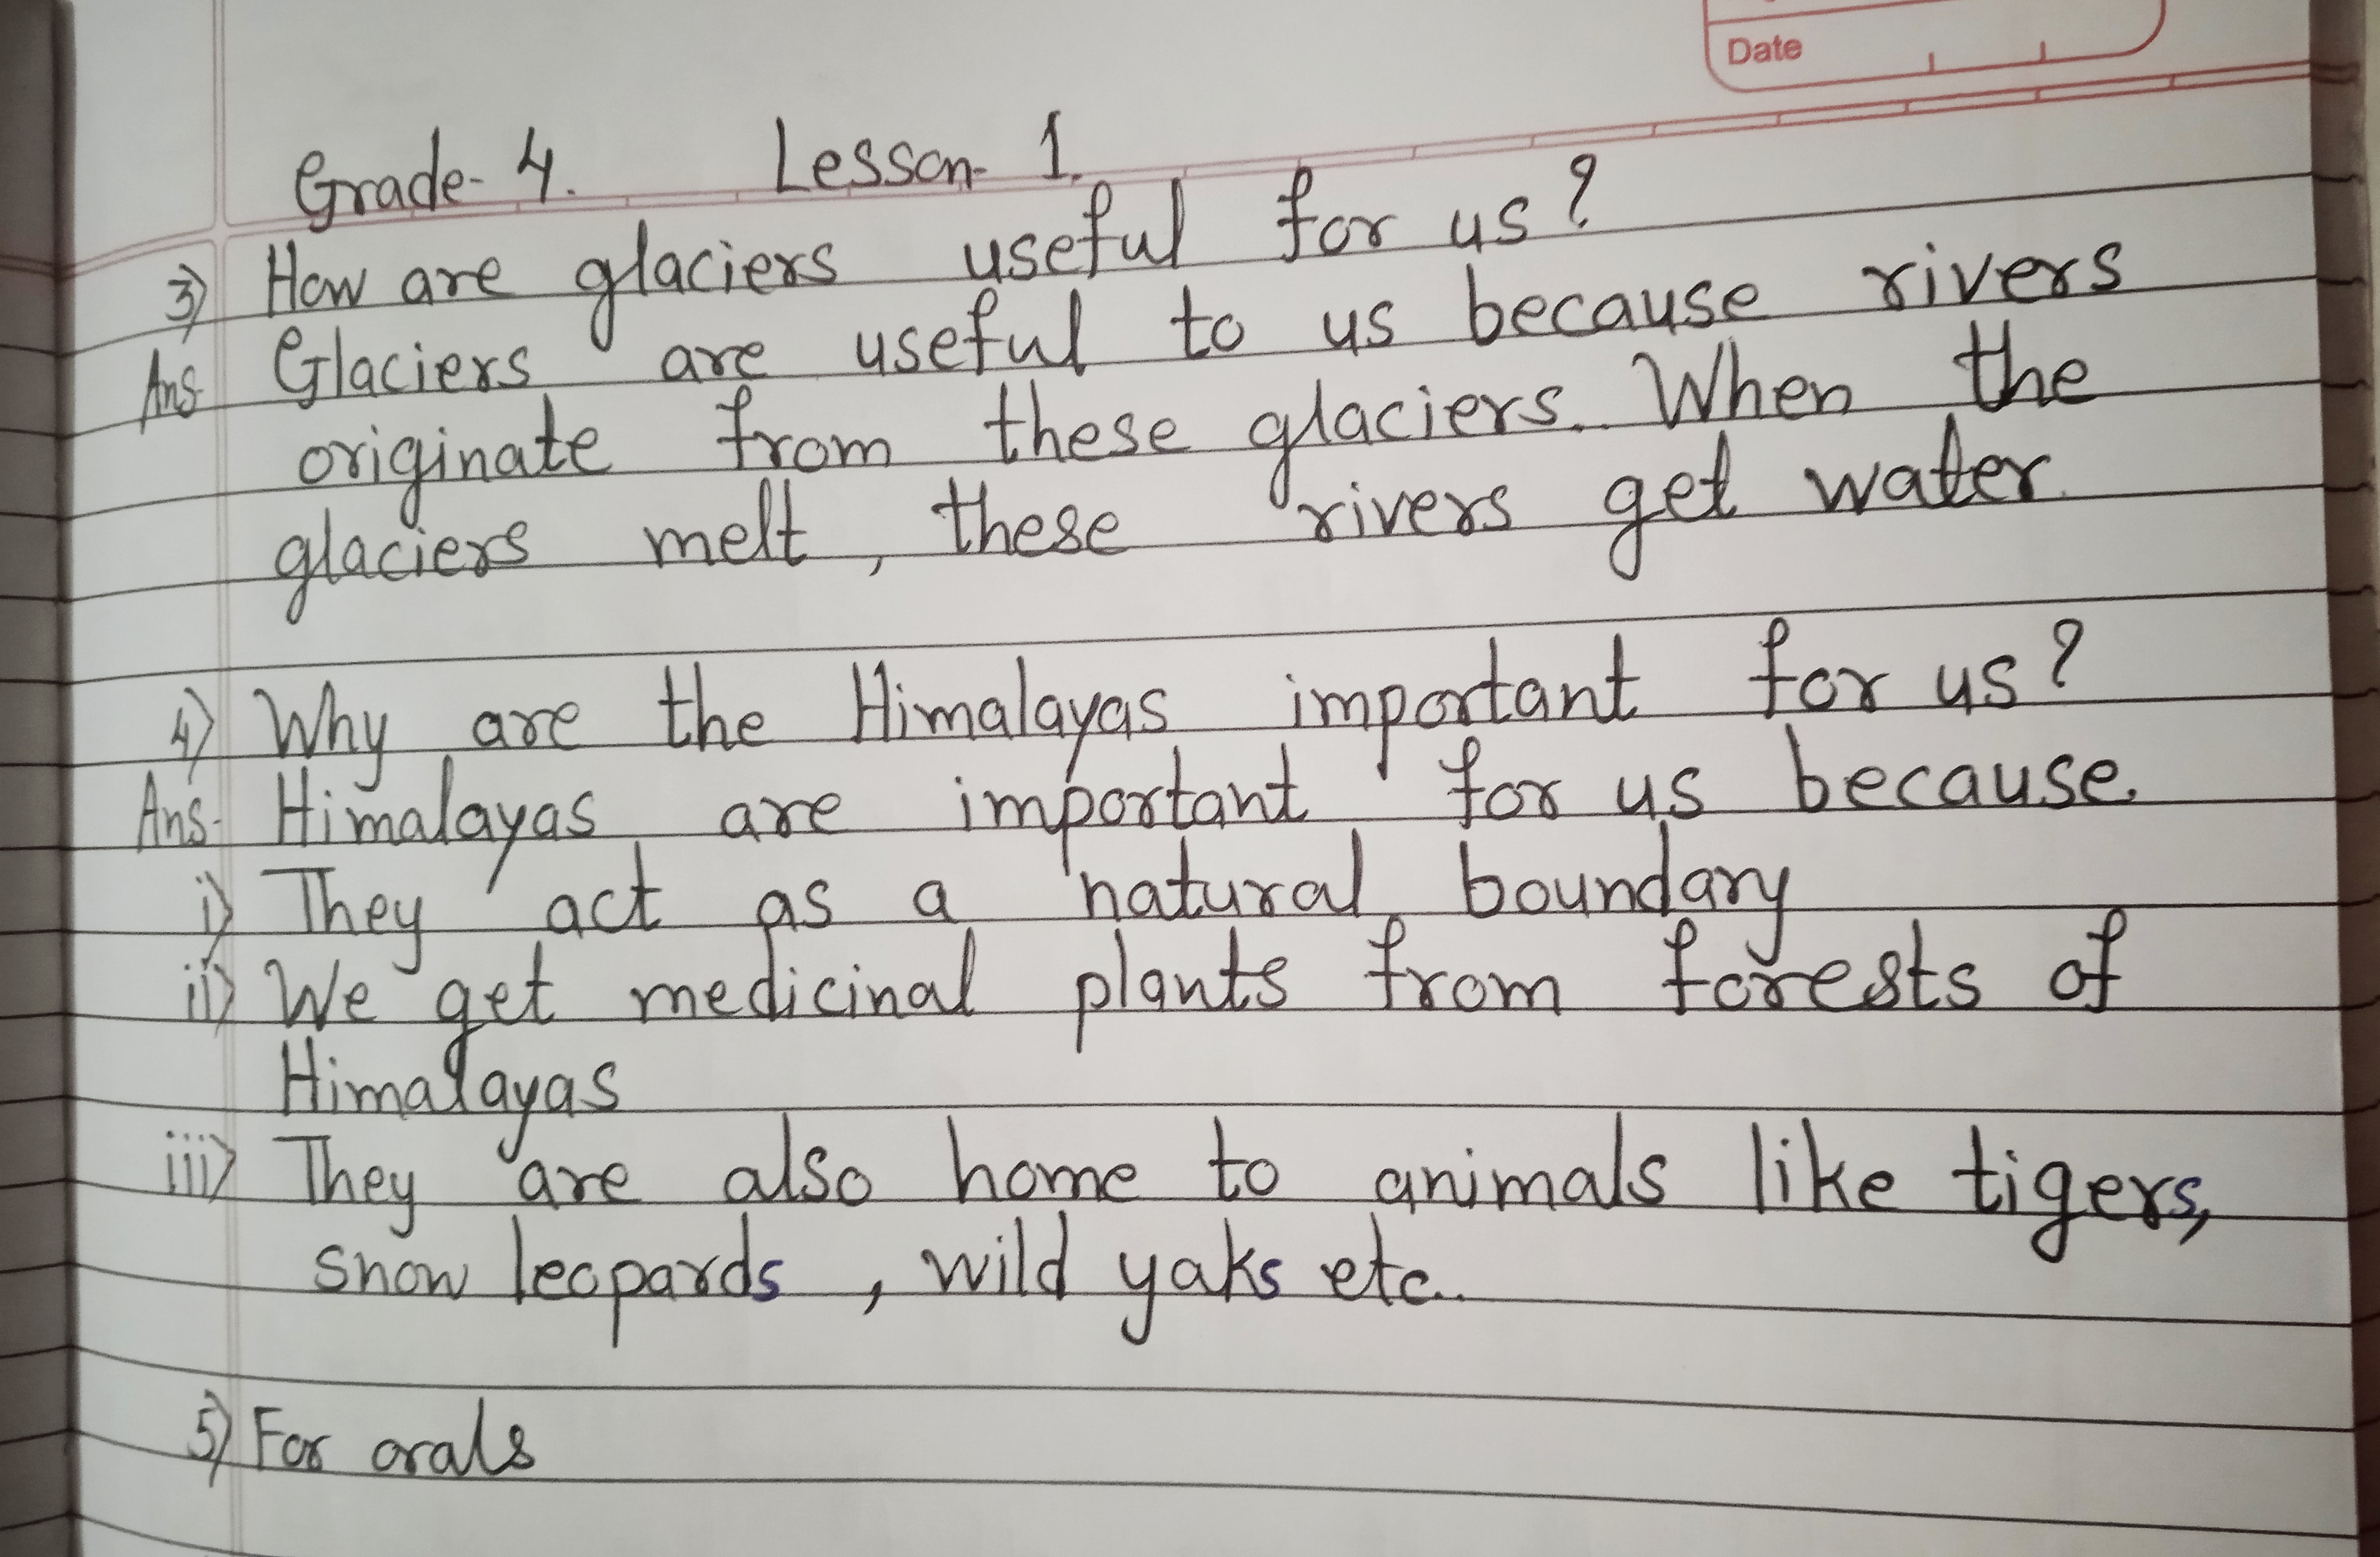 Date
Grade- 4. Lesson- 1.
3) How are glaciers useful for us?
Ans- Glaciers are useful to us because rivers
originate from these glaciers. When the
glaciers melt, these rivers get water.
4) Why are the Himalayas important for us?
Ans- Himalayas are important for us because.
i) They act as a natural boundary
ii) We get medicinal plants from forests of
Himalayas
iii) They are also home to animals like tigers,
snow leopards, wild yaks etc.
5) For orals